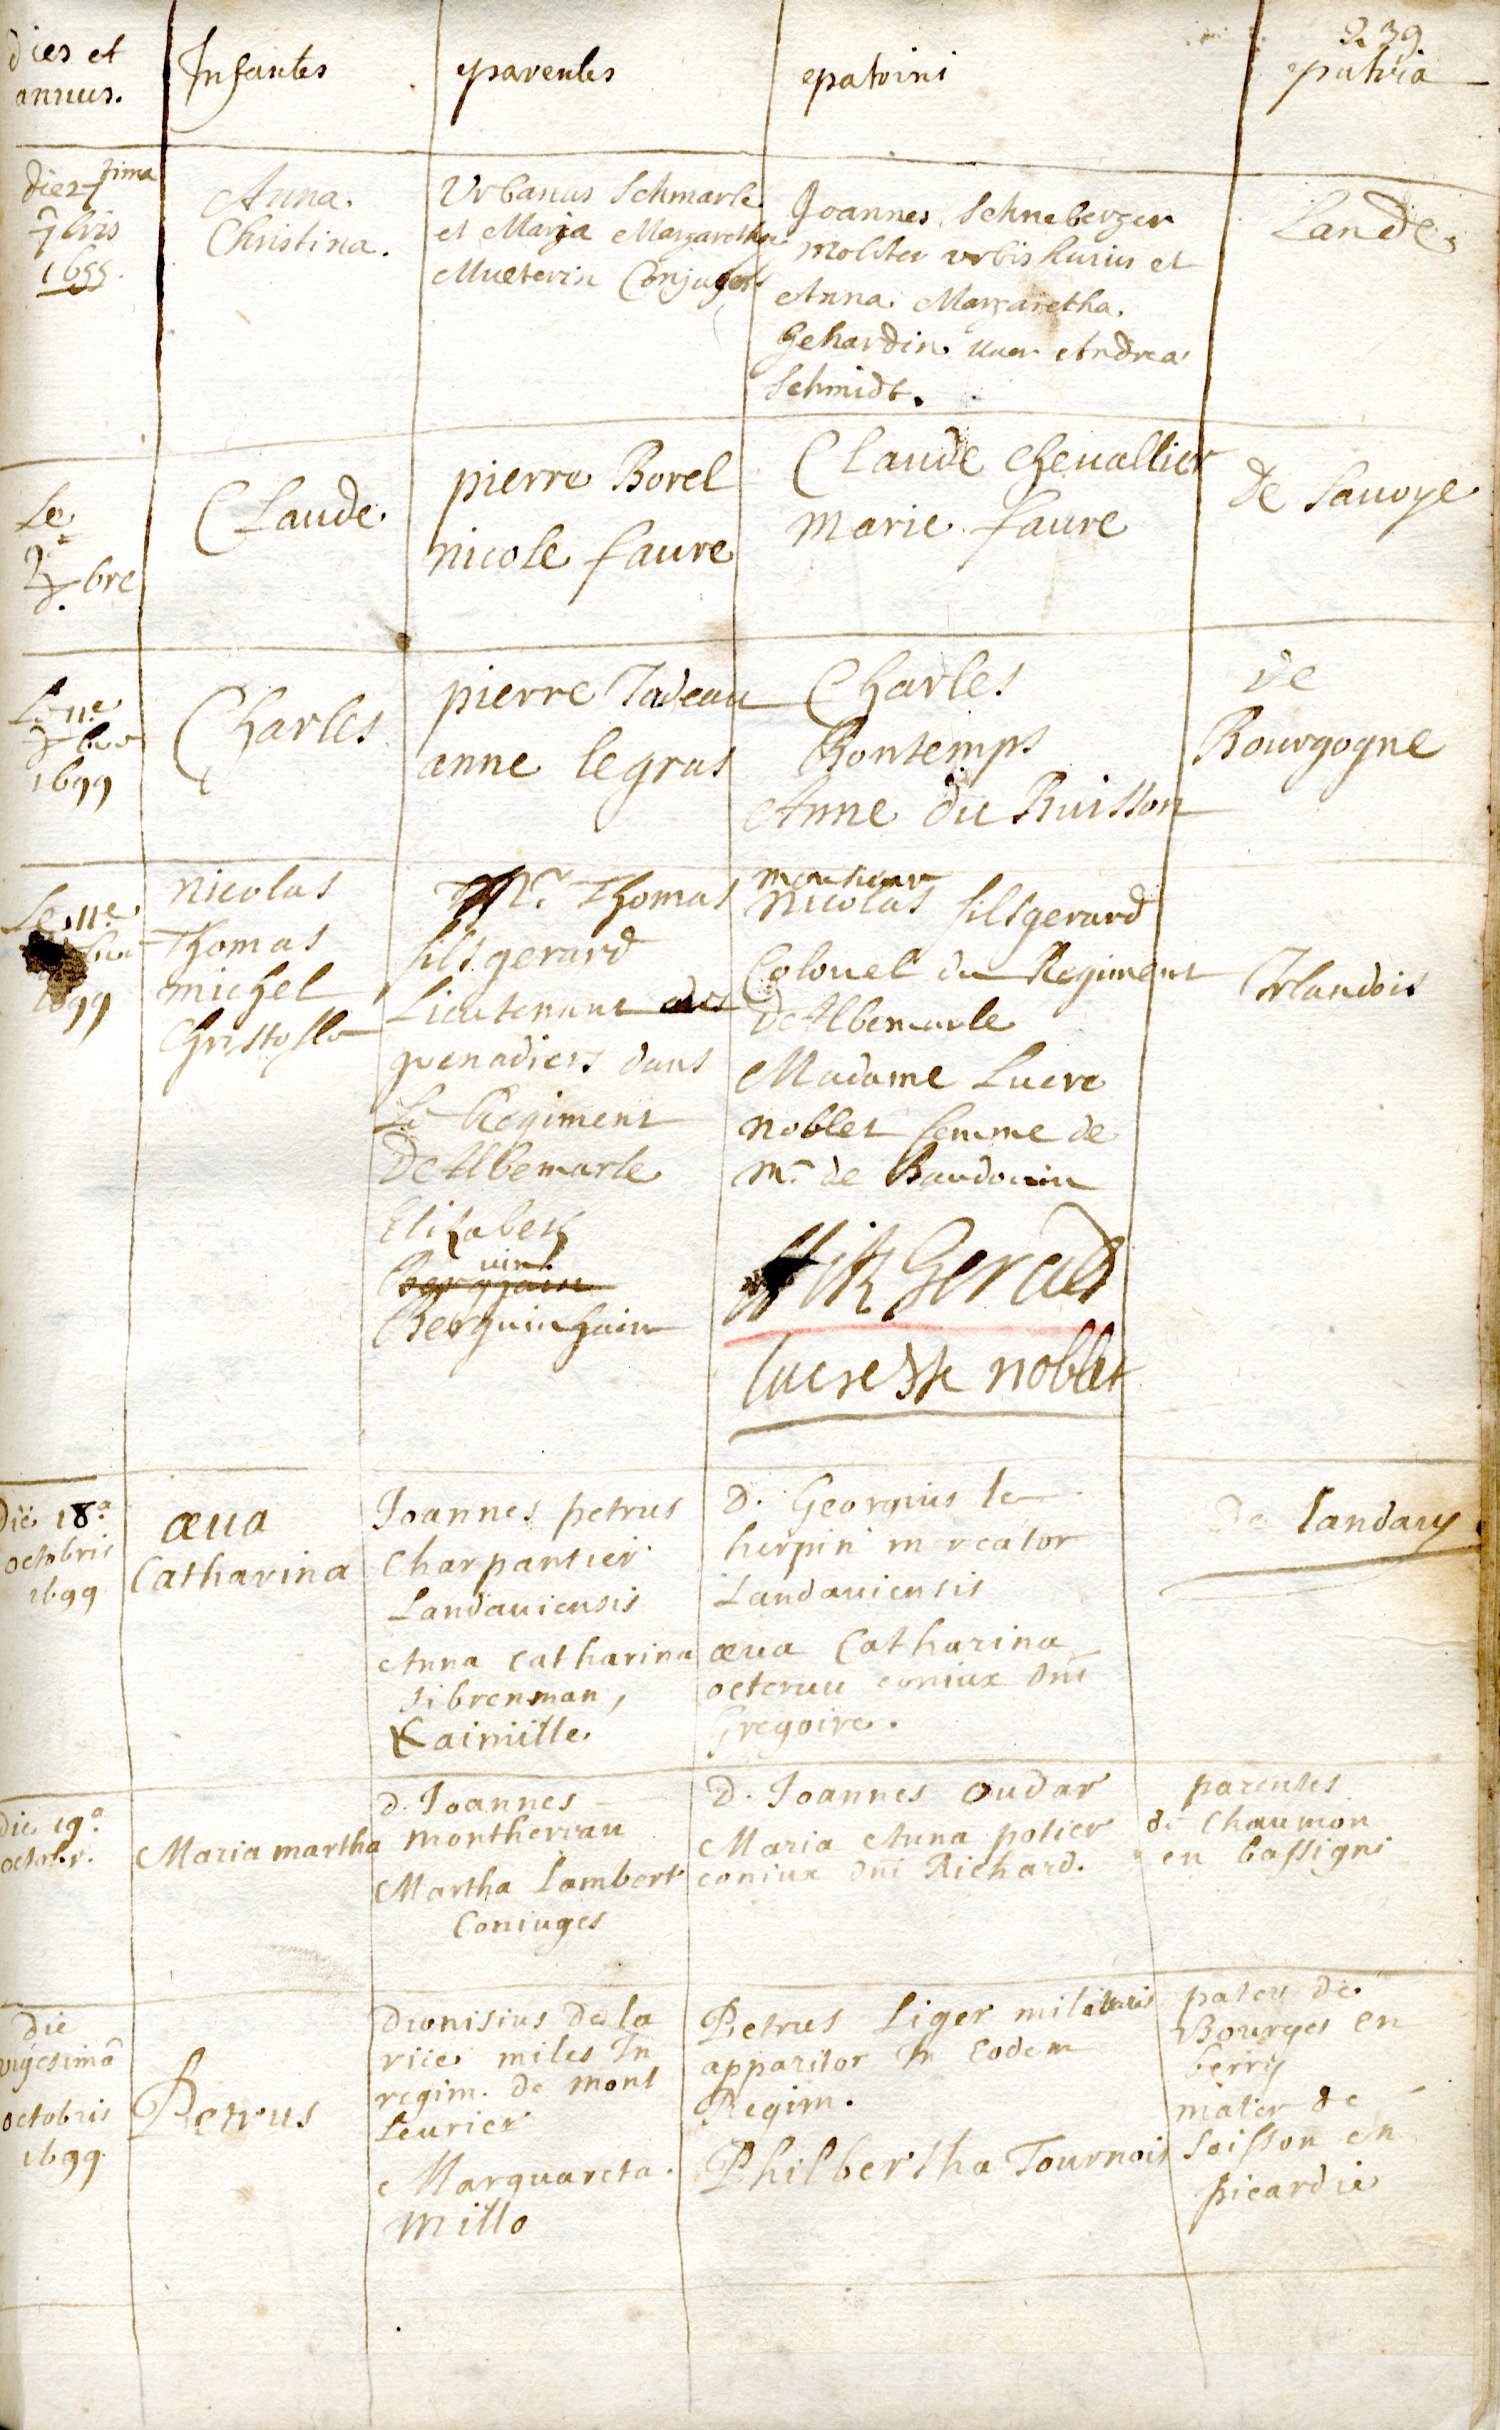 239
dies et
annus.
Infantes
parentes
patrini
patria
die 27 tima
7bris
1699.
Anna.
Christina.
Urbanus Schmarle
et Maria Margaretha
Mueterin Conjuges
Joannes Schneberger
molitor urbis huius et
Anna Margaretha.
Gehardin uxor Andrea
Schmidt.
Landes
Le
bre
Claude
pierre Borel
nicole faure
Claude chevallier
marie faure
de Sauoye
Le 11.e
1699
Charles
pierre Tadeau
anne legras
Charles
Bontemps
Anne du Buisson
de
Bourgogne
Le 11.e
1699
nicolas
Thomas
michel
Christofle
Mr. Thomas
filsgerard
Lieutenant des
grenadiers dans
Le Regiment
De Albemarle
Elizabeth
Berguinhain
monsieur
nicolas filsgerard
Colonel du Regiment
De Albemarle
Madame Lucre
noblet femme de
Mr. de Baudouin
FitzGerald
lucresse noblet
Irlandois
Die 18.a
octobris
1699
æua
Catharina
Joannes petrus
Charpantier
Landauiensis
Anna Catharina
sibrenman,
D. Georgius le
herpin mercator
Landauiensis
æua Catharina
coniux dni
Gregoire.
De landau
Die 19.a
octobr.
Maria martha
d. Joannes
montherrau
Martha Lambert
Coniuges
D. Joannes oudar
Maria Anna potier
coniux dni Richard.
parentes
de Chaumon
en bassigni
die
vigesimâ
octobris
1699
Petrus
Dionisius de la
riie miles In
regim. de mont
leurier
Marguareta.
millo
Petrus Liger militaris
apparitor In eodem
Regim.
Philbertha Tournois
pater de
Bourges en
berry
mater de
soisson en
picardie